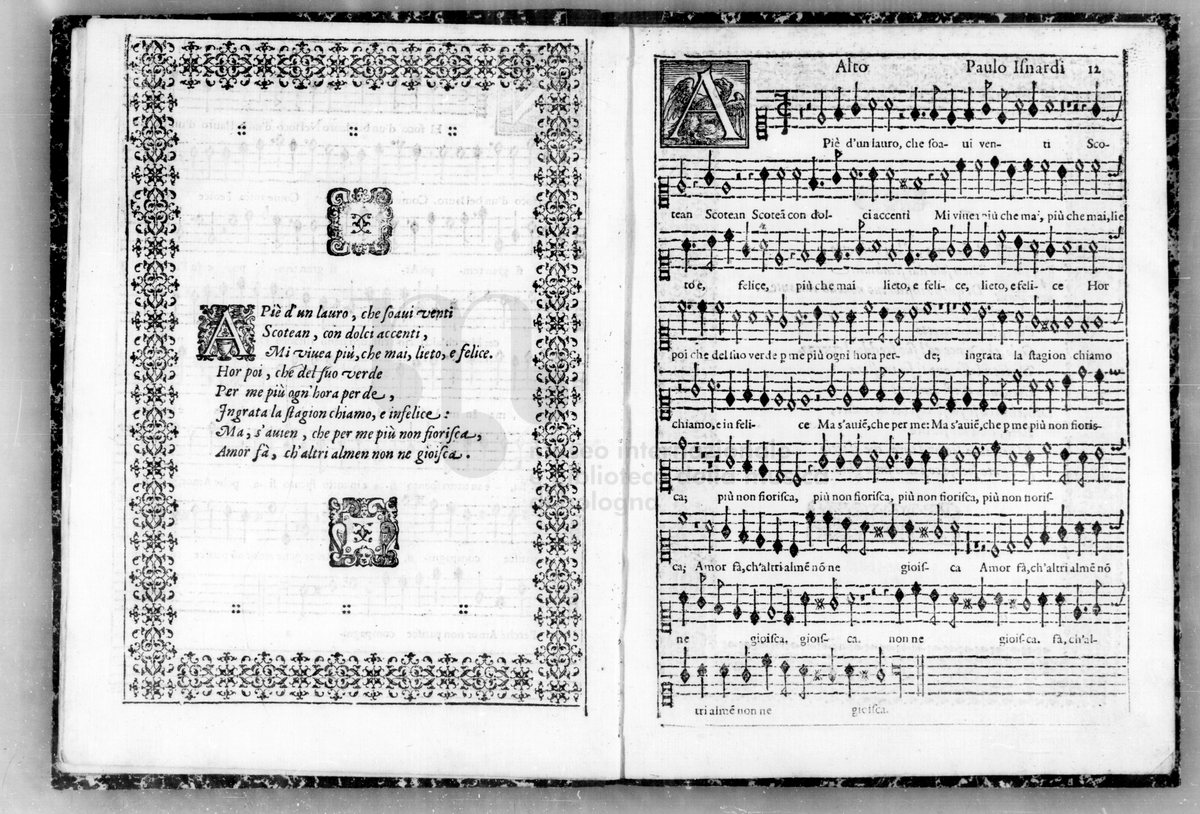 A Piè d'un lauro, che soaui venti
Scotean, con dolci accenti,
Mi viuea più, che mai, lieto, e felice.
Hor poi, che del suo verde
Per me più ogn'hora perde,
Ingrata la stagion chiamo, e infelice:
Ma, s'auien, che per me più non fiorisca,
Amor fà, ch'altri almen non ne gioisca.
Alto Paulo Isnardi 12
A Piè d'un lauro, che soa- ui ven- ti Sco-
tean Scotean Scoteā con dol- ci accenti Mi viuea più che mai, più che mai, lie
to e, felice, più che mai lieto, e feli- ce, lieto, e feli- ce Hor
poi che del suo verde p me più ogni hora per- de; ingrata la stagion chiamo
chiamo, e in feli- ce Ma s'auiē, che per me: Ma s'auiē, che p me più non fioris-
ca; più non fiorisca, più non fiorisca, più non fiorisca, più non fioris-
ca; Amor fà, ch'altri almē nō ne giois- ca Amor fà, ch'altri almē nō
ne gioisca, giois- ca. non ne giois-ca. fà, ch'al-
tri almē non ne gioisca.
museo internazionale
e biblioteca della musica
di bologna